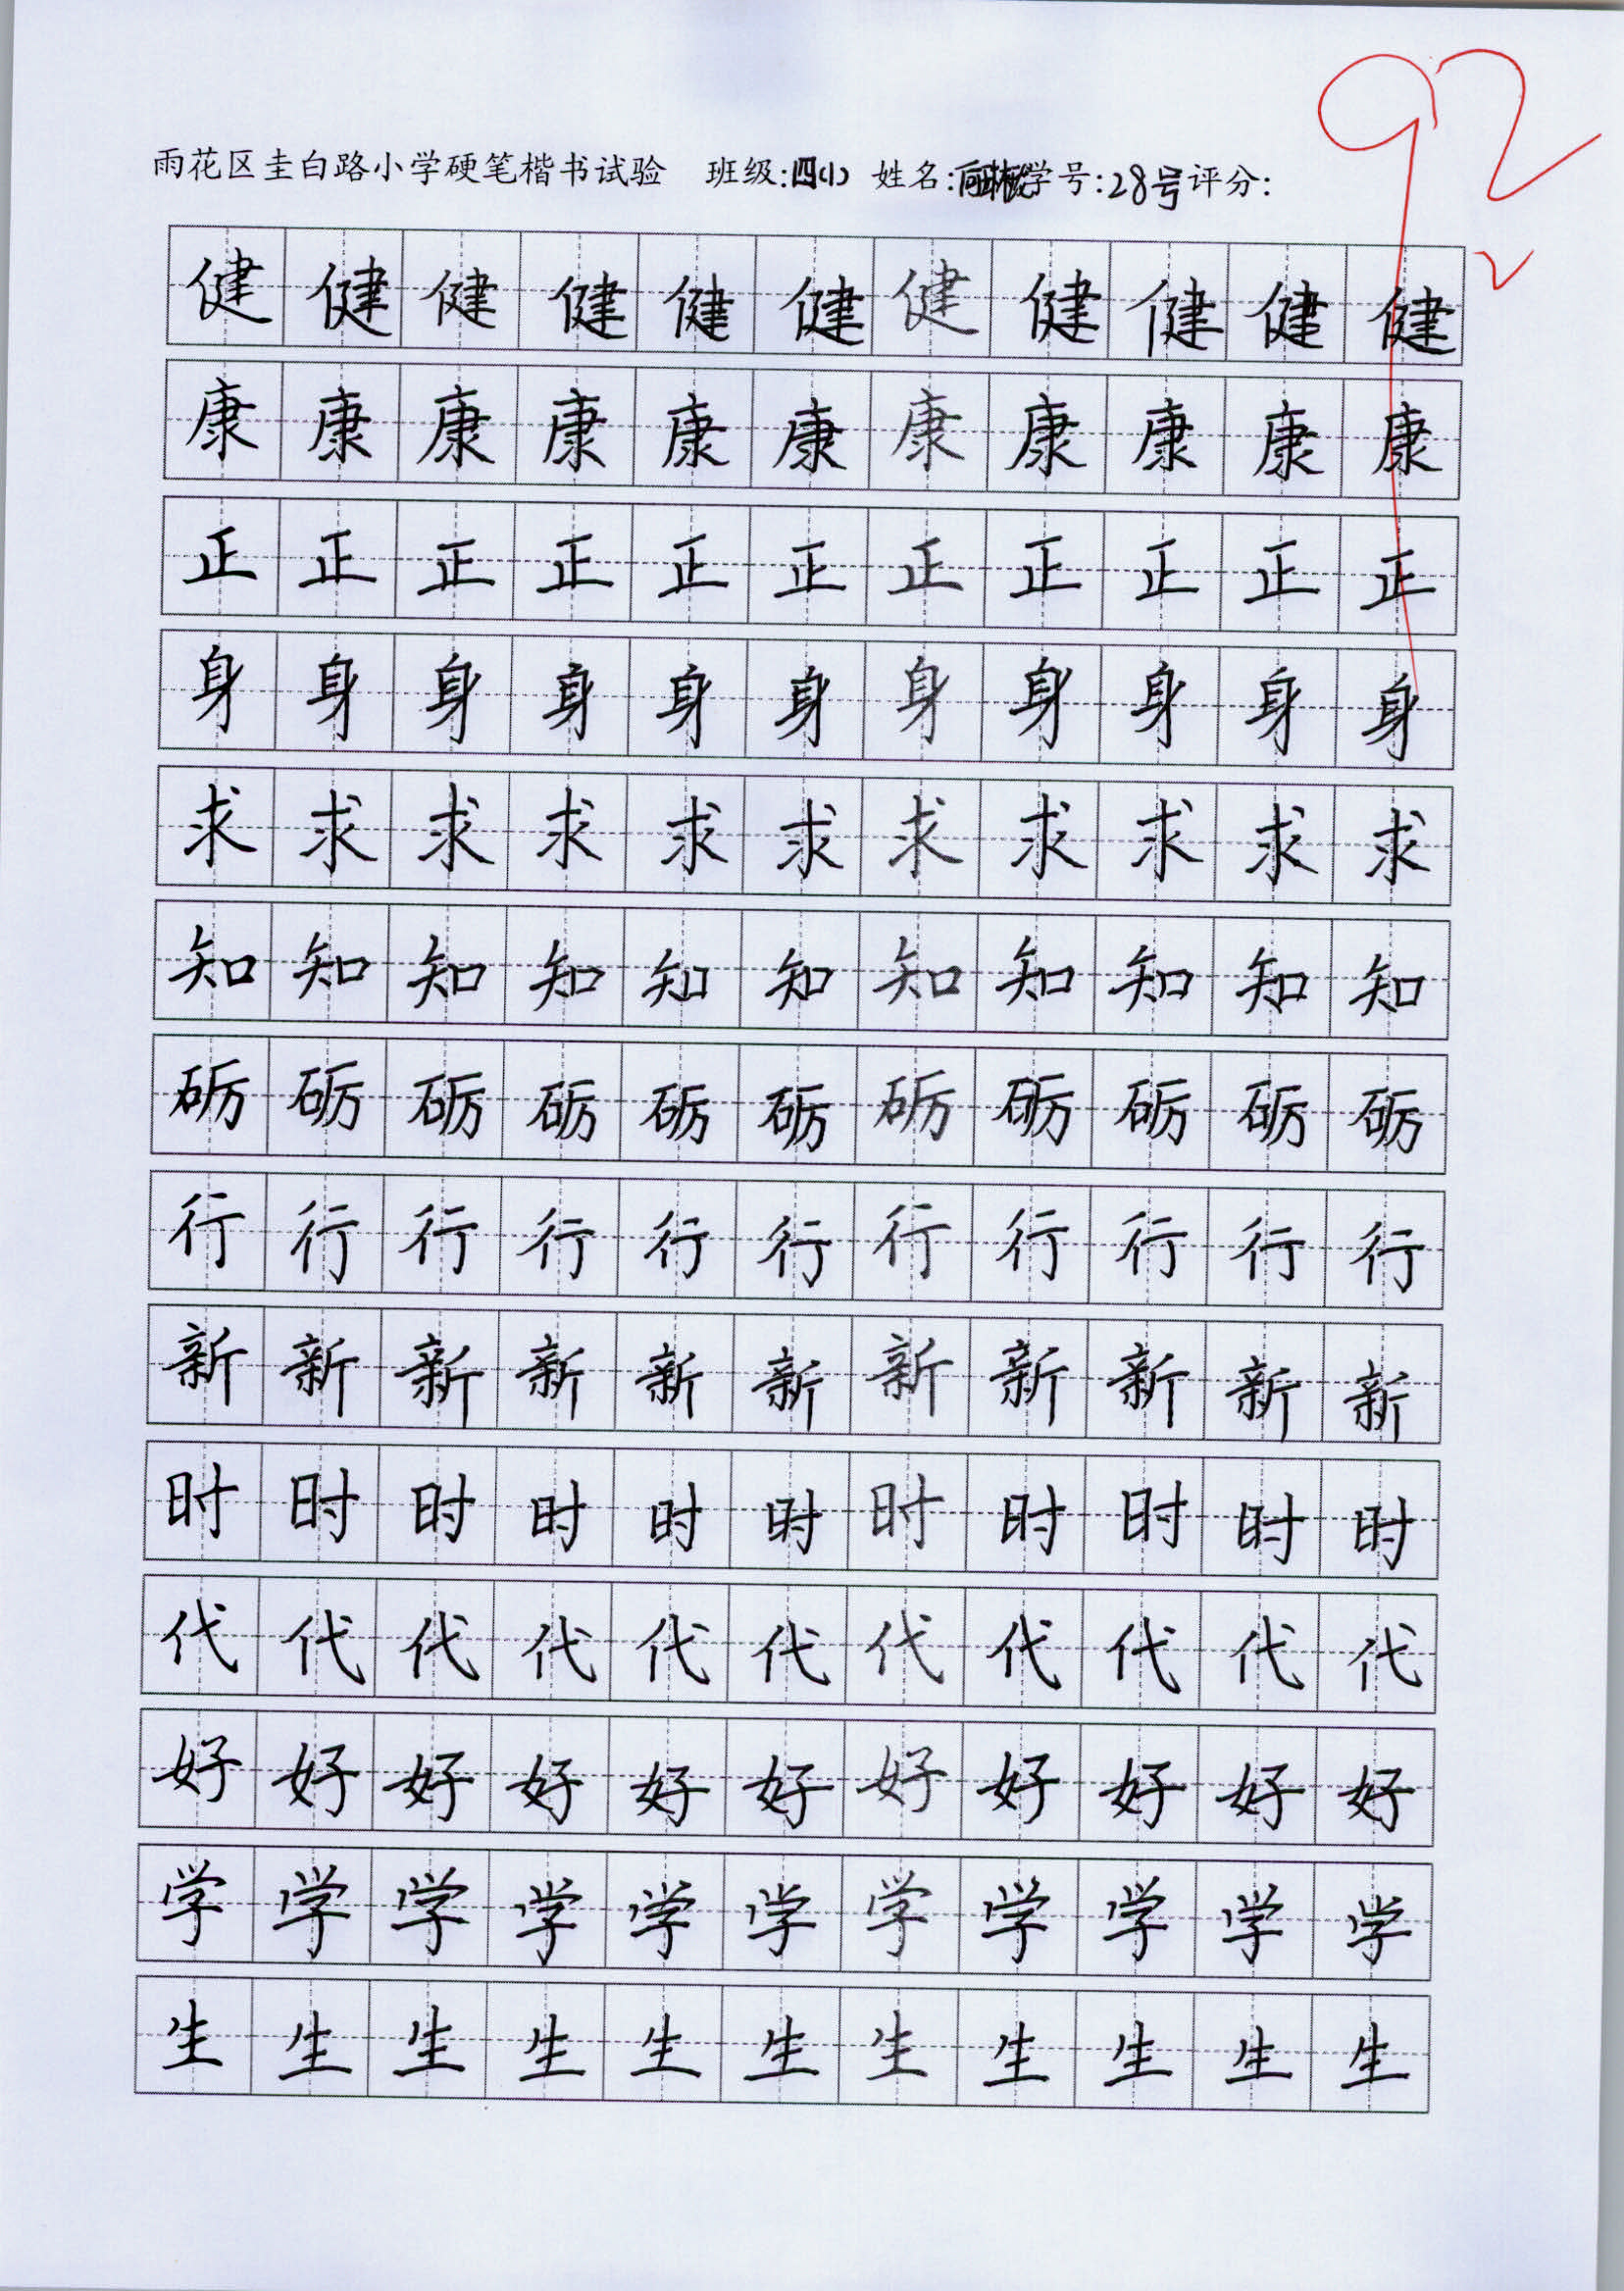 雨花区圭白路小学硬笔楷书试验 班级:四(1) 姓名: 学号:28号 评分:
92
健健健健健健健健健健健
康康康康康康康康康康康
正正正正正正正正正正正
身身身身身身身身身身身
求求求求求求求求求求求
知知知知知知知知知知知
砺砺砺砺砺砺砺砺砺砺砺
行行行行行行行行行行行
新新新新新新新新新新新
时时时时时时时时时时时
代代代代代代代代代代代
好好好好好好好好好好好
学学学学学学学学学学学
生生生生生生生生生生生